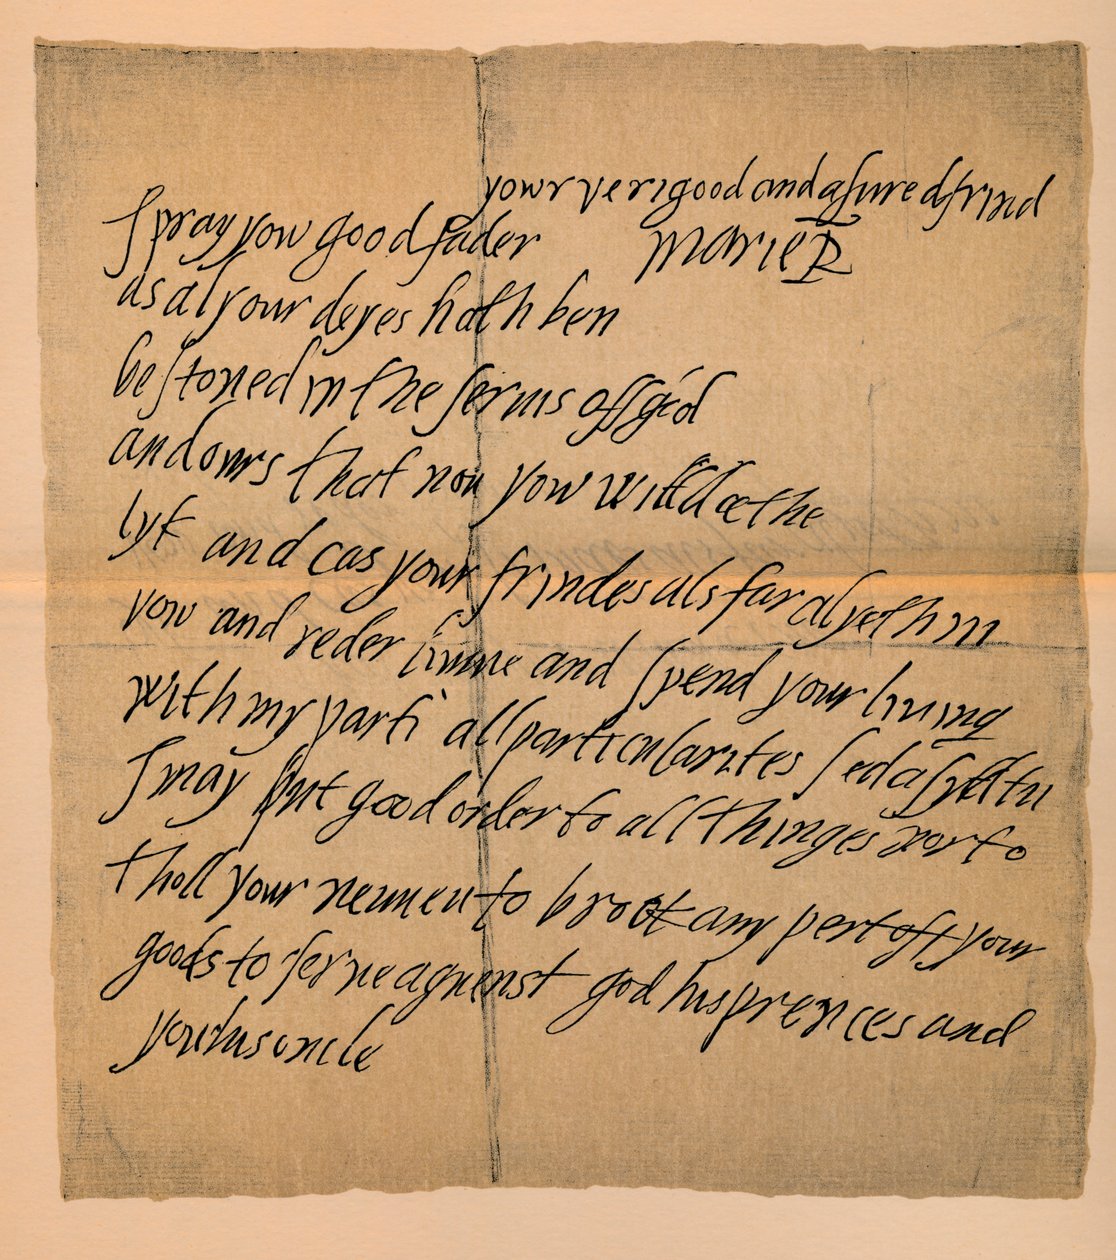 yowr veri good and asured frind
Marie R
I pray yow good fader
as al your deyes hath ben
bestoned in the servis off god
and owrs that nou yow will
lyk and cas your frindes als far al yeth in
yow and reder and spend your living
with my parti all particularites
I may put good order to all thinges nor to
tholl your to brook any pert off your
goods to serve aguenst god his prences and
your